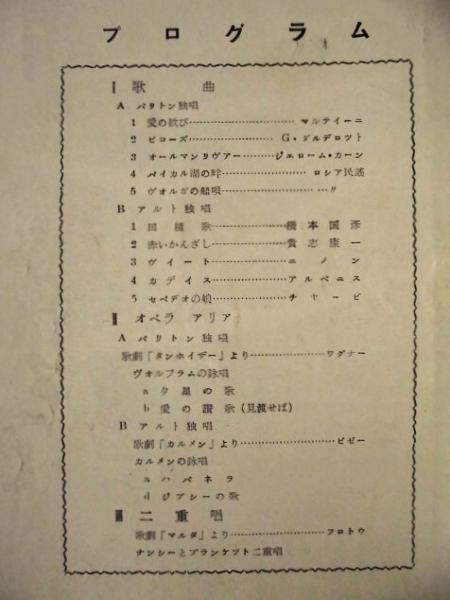 プログラム
Ⅰ 歌曲
A バリトン独唱
1 愛の歓び……………………マルテイーニ
2 ビコーズ……………………G・ダルデロット
3 オールマンリヴアー………ジェローム・カーン
4 バイカル湖の畔……………ロシア民謡
5 ヴォルガの船唄……………〃
B アルト独唱
1 田植歌………………………橋本国彦
2 赤いかんざし………………貴志康一
3 ヴィート……………………ニノン
4 カデイス……………………アルベニス
5 セベデオの娘………………チャービ
Ⅱ オペラ アリア
A バリトン独唱
歌劇『タンホイザー』より……………ワグナー
ヴォルフラムの詠唱
a 夕星の歌
b 愛の讃歌(見渡せば)
B アルト独唱
歌劇『カルメン』より……………ビゼー
カルメンの詠唱
a ハバネラ
d ジプシーの歌
Ⅲ 二重唱
歌劇『マルタ』より……………フロトウ
ナンシーとプランケツト二重唱